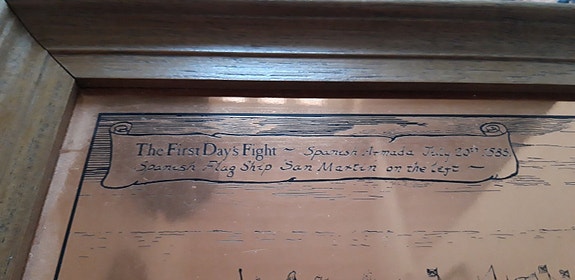 The First Day's Fight ~ Spanish Armada July 20th 1588
Spanish Flag Ship San Martin on the left ~